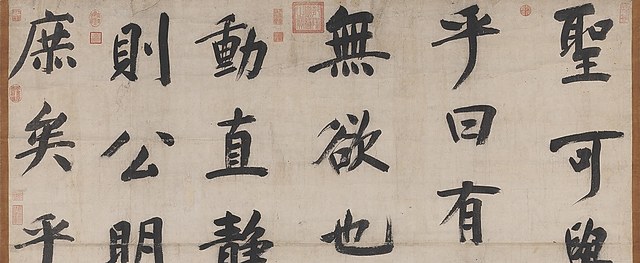 聖可學
乎曰有
無欲也
動直靜
則公明
庶矣乎